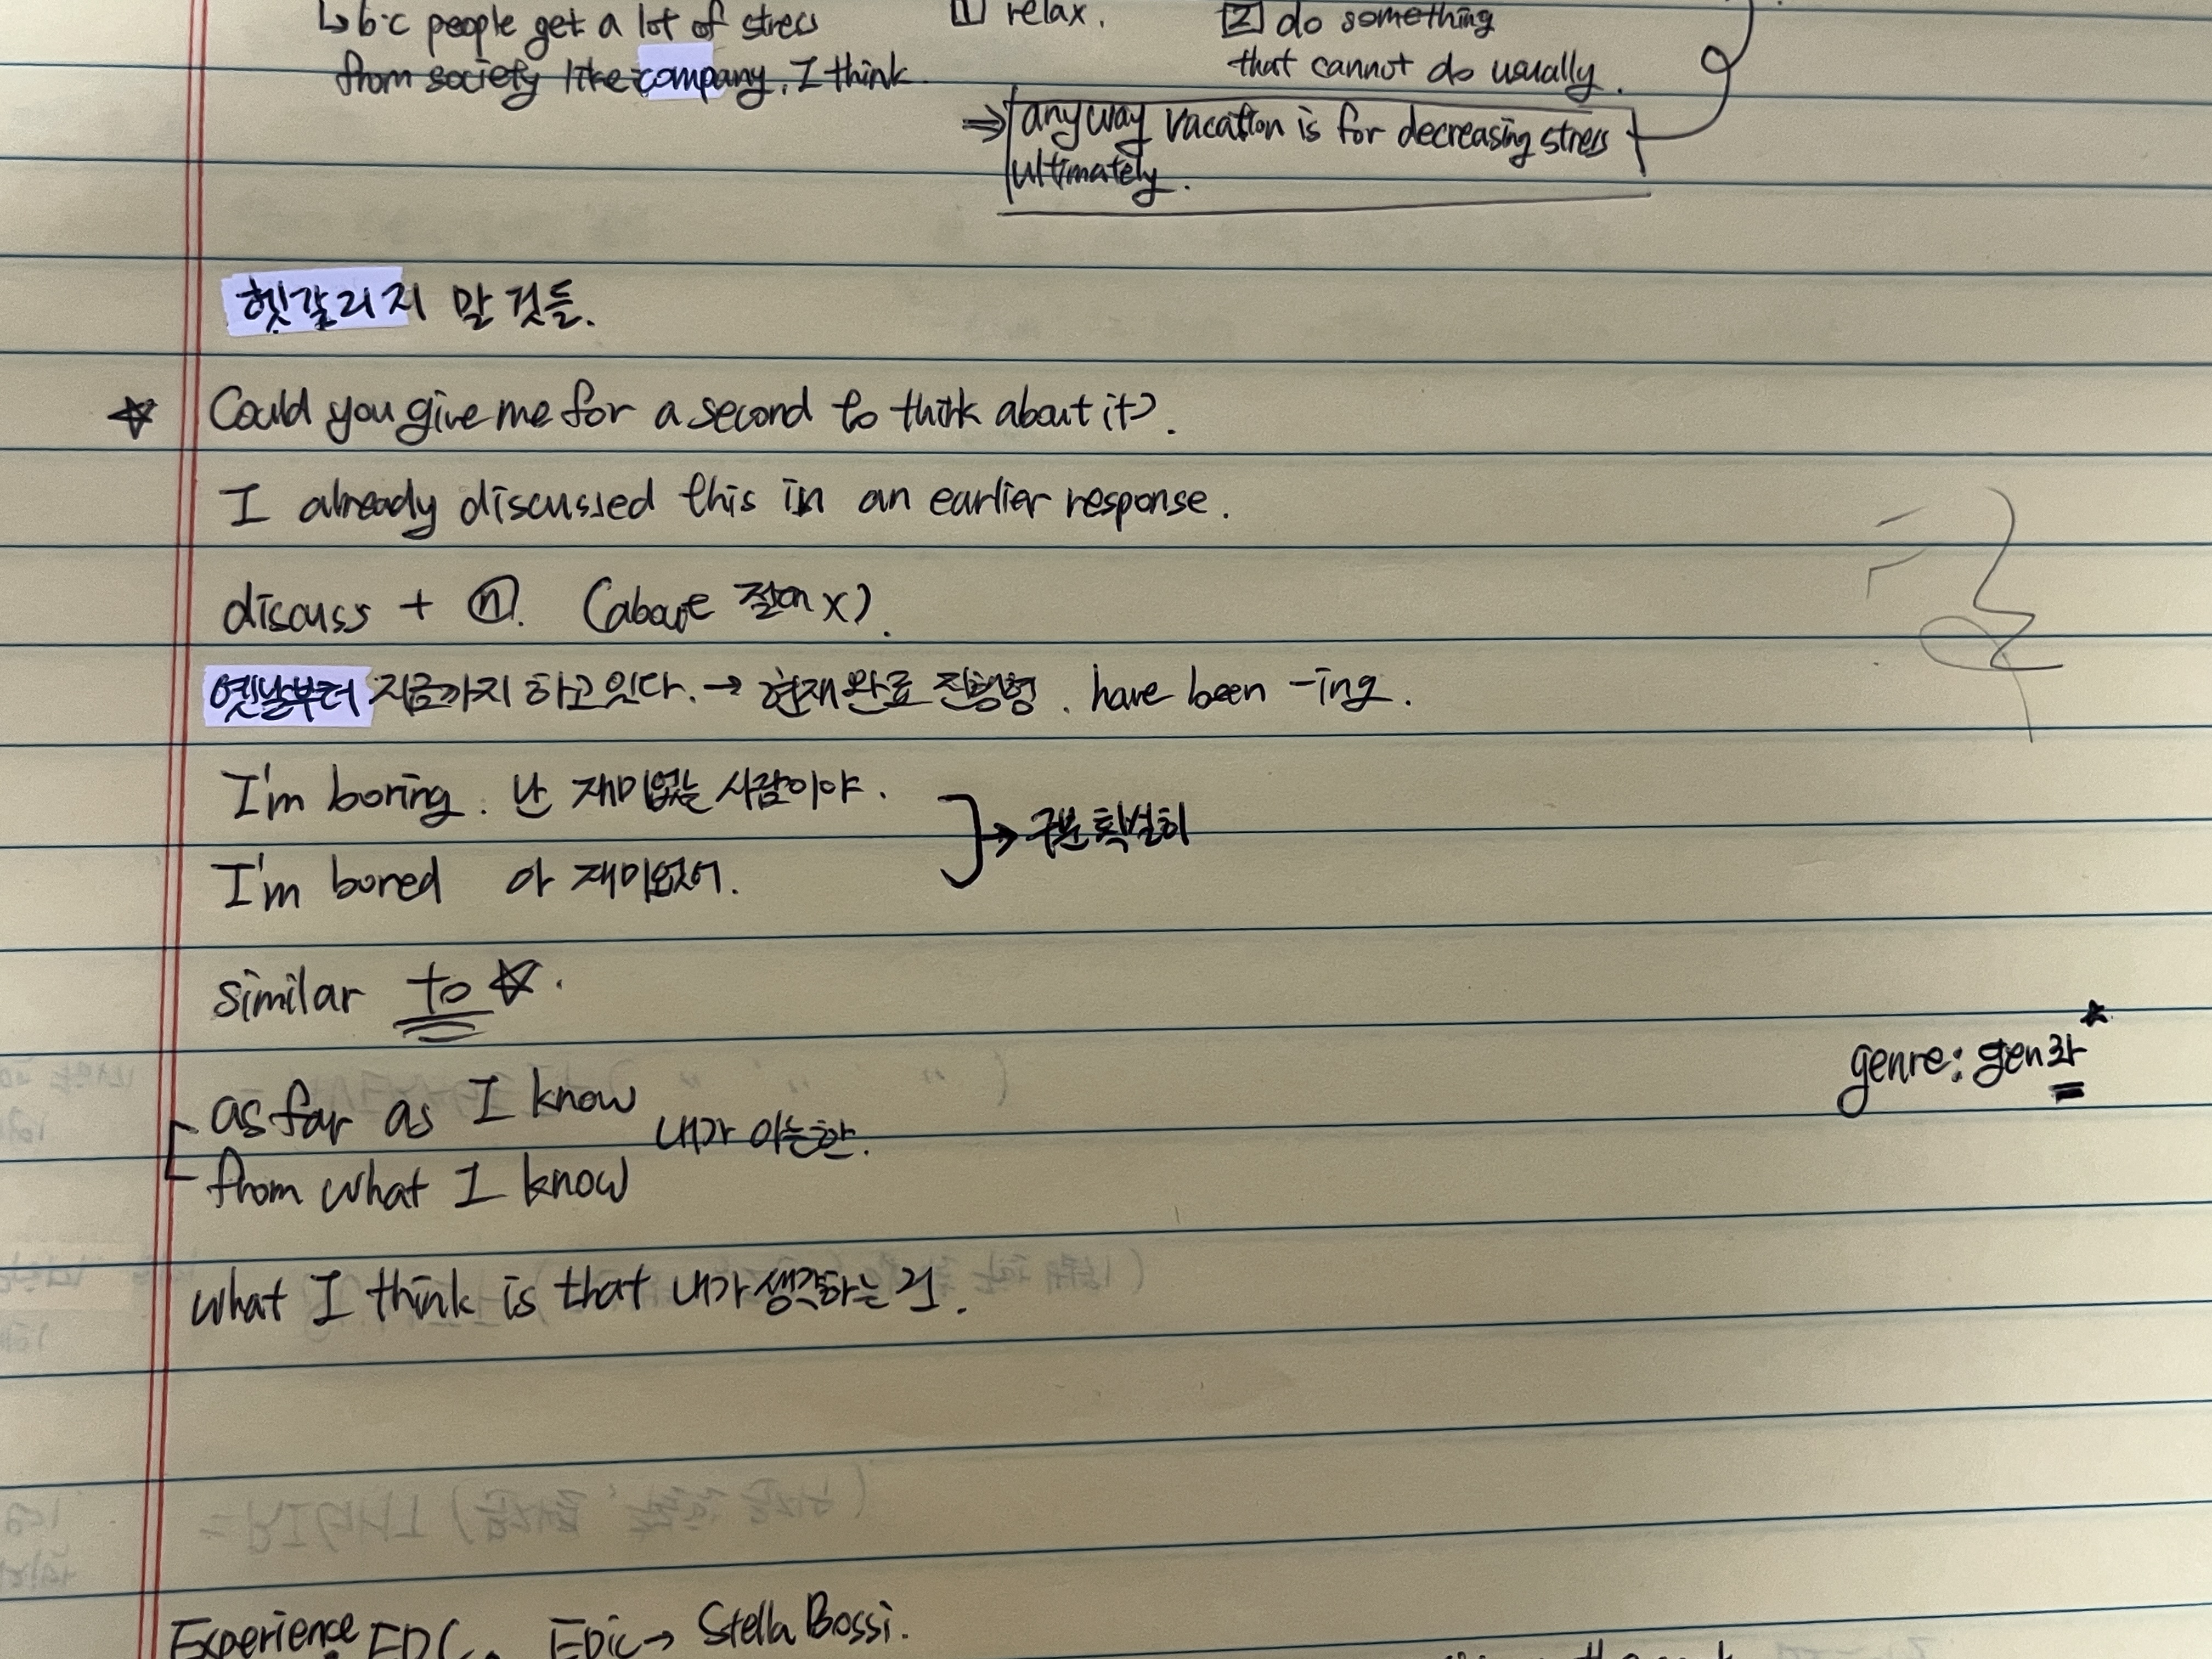 ↳ b·c people get a lot of stress
from society like company. I think.
1 relax.
2 do something
that cannot do usually.
⇒ anyway vacation is for decreasing stress
ultimately.
헷갈리지 말 것들.
☆ Could you give me for a second to think about it?.
I already discussed this in an earlier response.
discuss + ⓝ. (about 절어 X).
옛날부터 지금까지 하고있다. → 현재완료 진행형. have been -ing.
I'm boring. 난 재미없는 사람이야.
I'm bored 아 재미없어.
→ 구분 확실히
similar to ☆.
genre: gen롸 ☆
as far as I know
from what I know
내가 아는한.
what I think is that 내가 생각하는 건.
Experience EDC. EDIC → Stella Bossi.